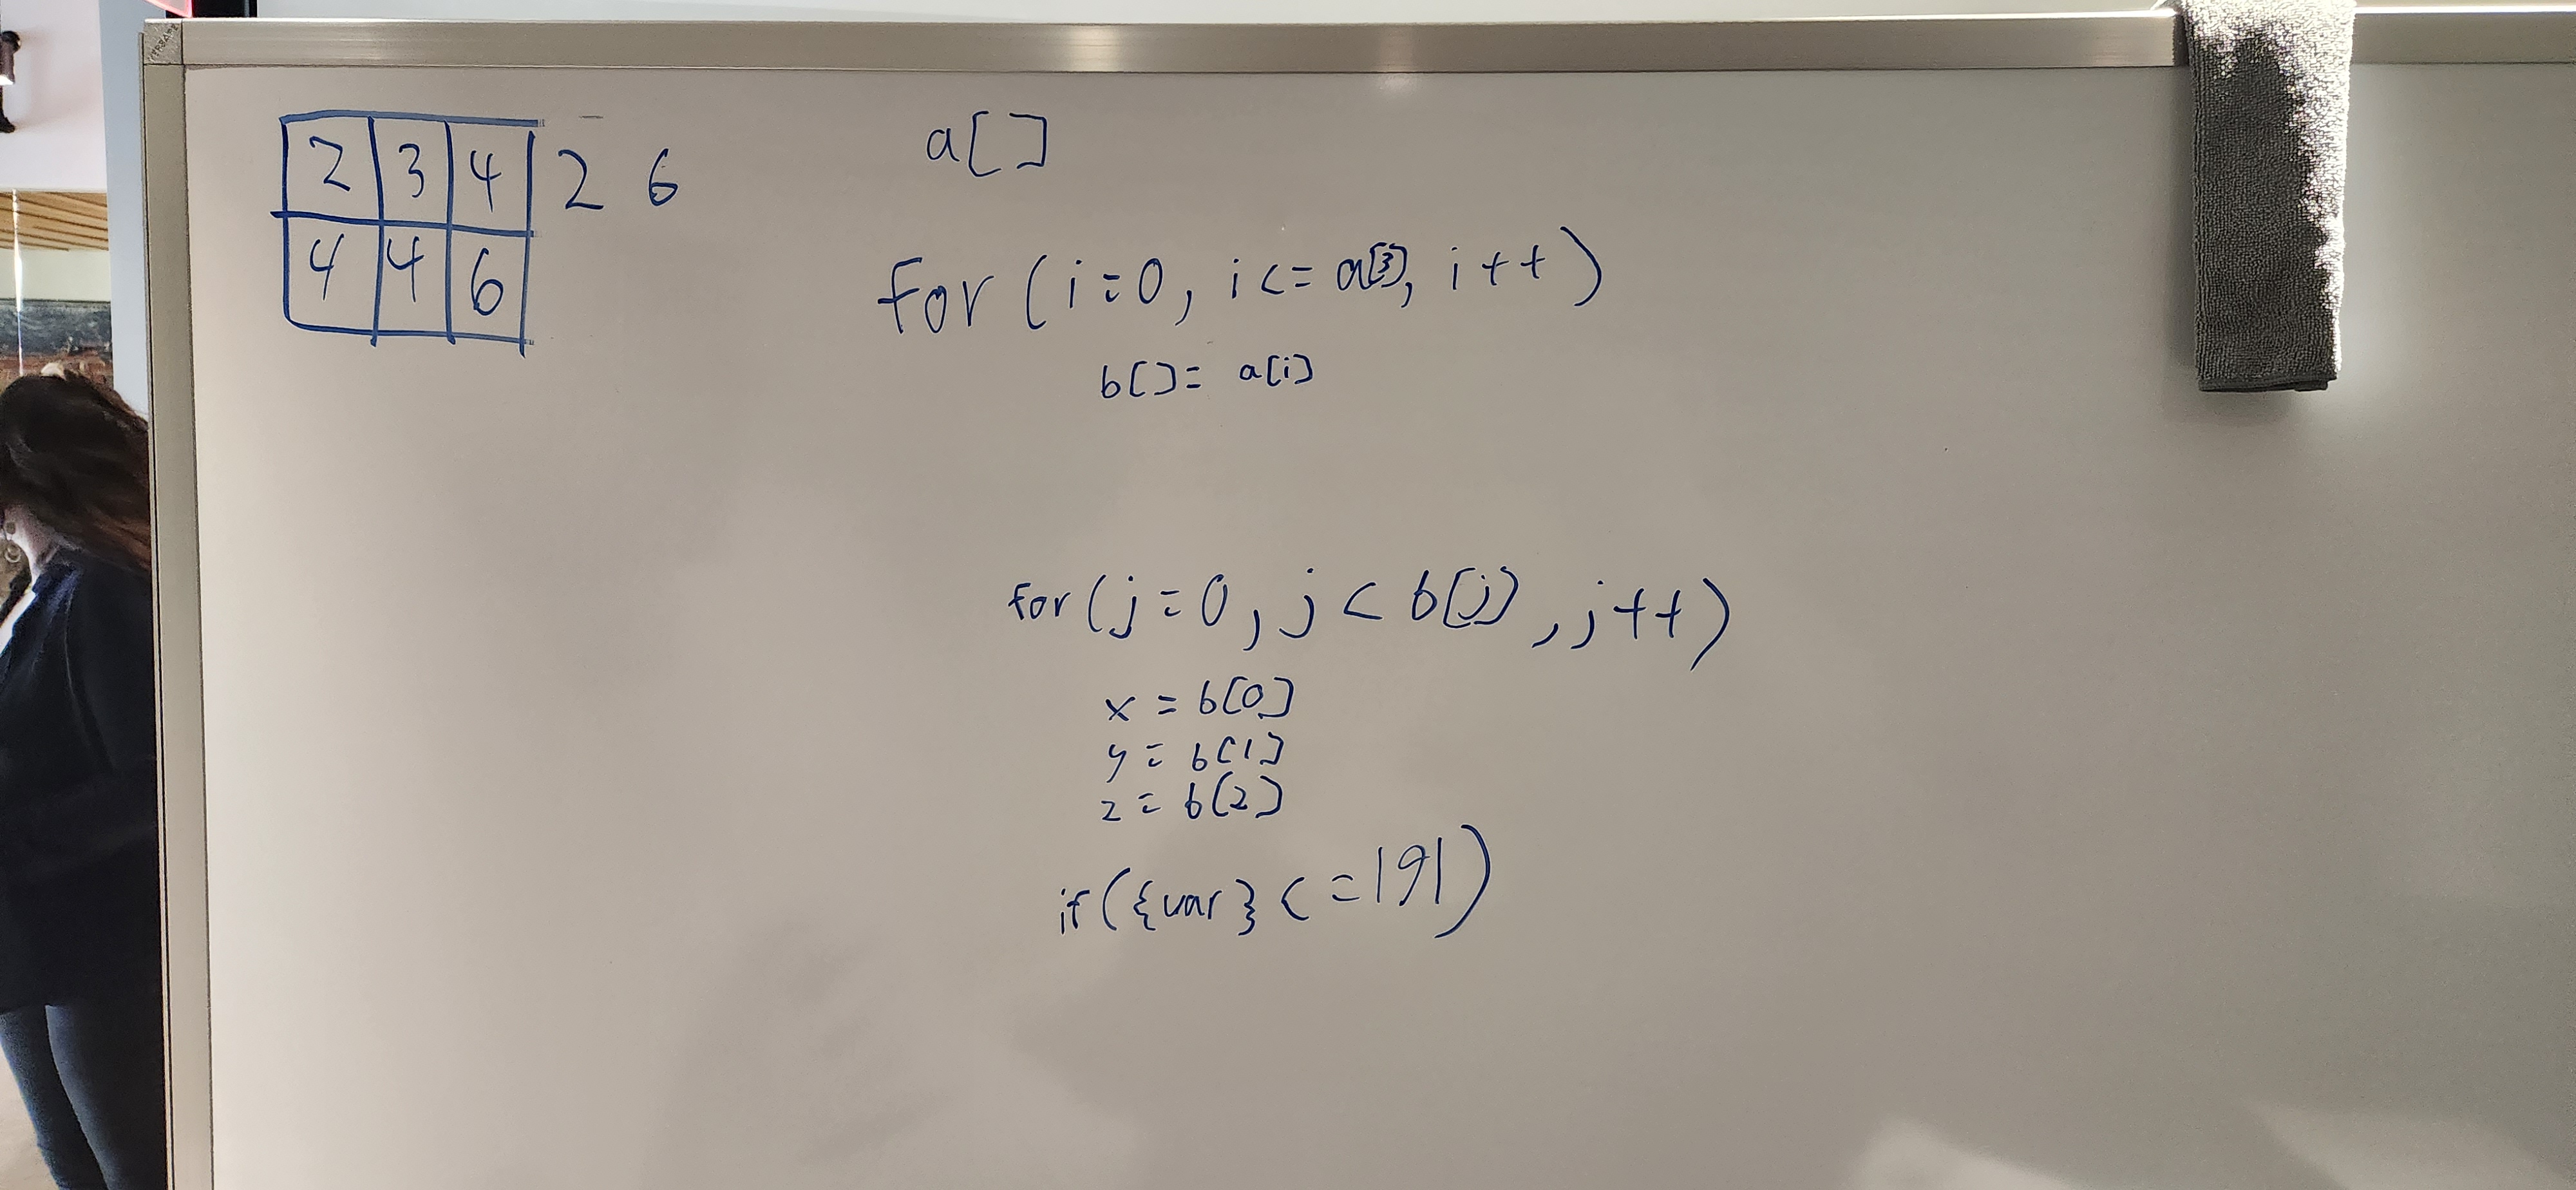 2 3 4 2 6
4 4 6
a[]
for (i=0, i<= a[3], i++)
b[]= a[i]
for (j=0, j < b[j], j++)
x = b[0]
y = b[1]
z = b[2]
if ({var} <= 191)